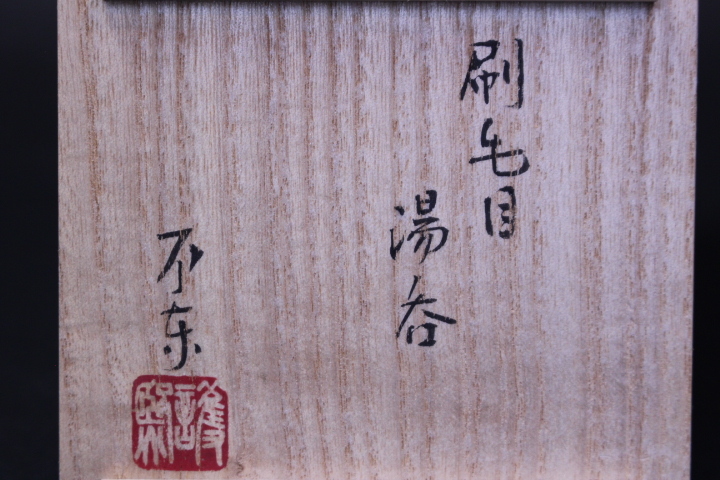 刷毛目
湯呑
不东